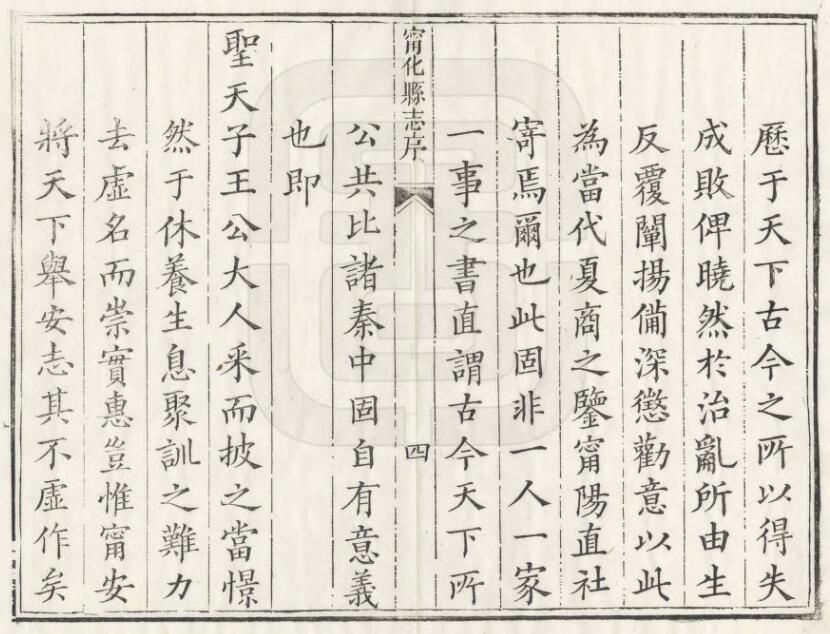 歷于天下古今之所以得失
成敗俾曉然於治亂所由生
反覆闡揚備深懲勸意以此
為當代夏商之鑒甯陽直社
寄焉爾也此固非一人一家
一事之書直謂古今天下所
甯化縣志序
四
公共比諸秦中固自有意義
也即
聖天子王公大人釆而披之當憬
然于休養生息聚訓之難力
去虛名而崇實惠豈惟甯安
將天下舉安志其不虛作矣